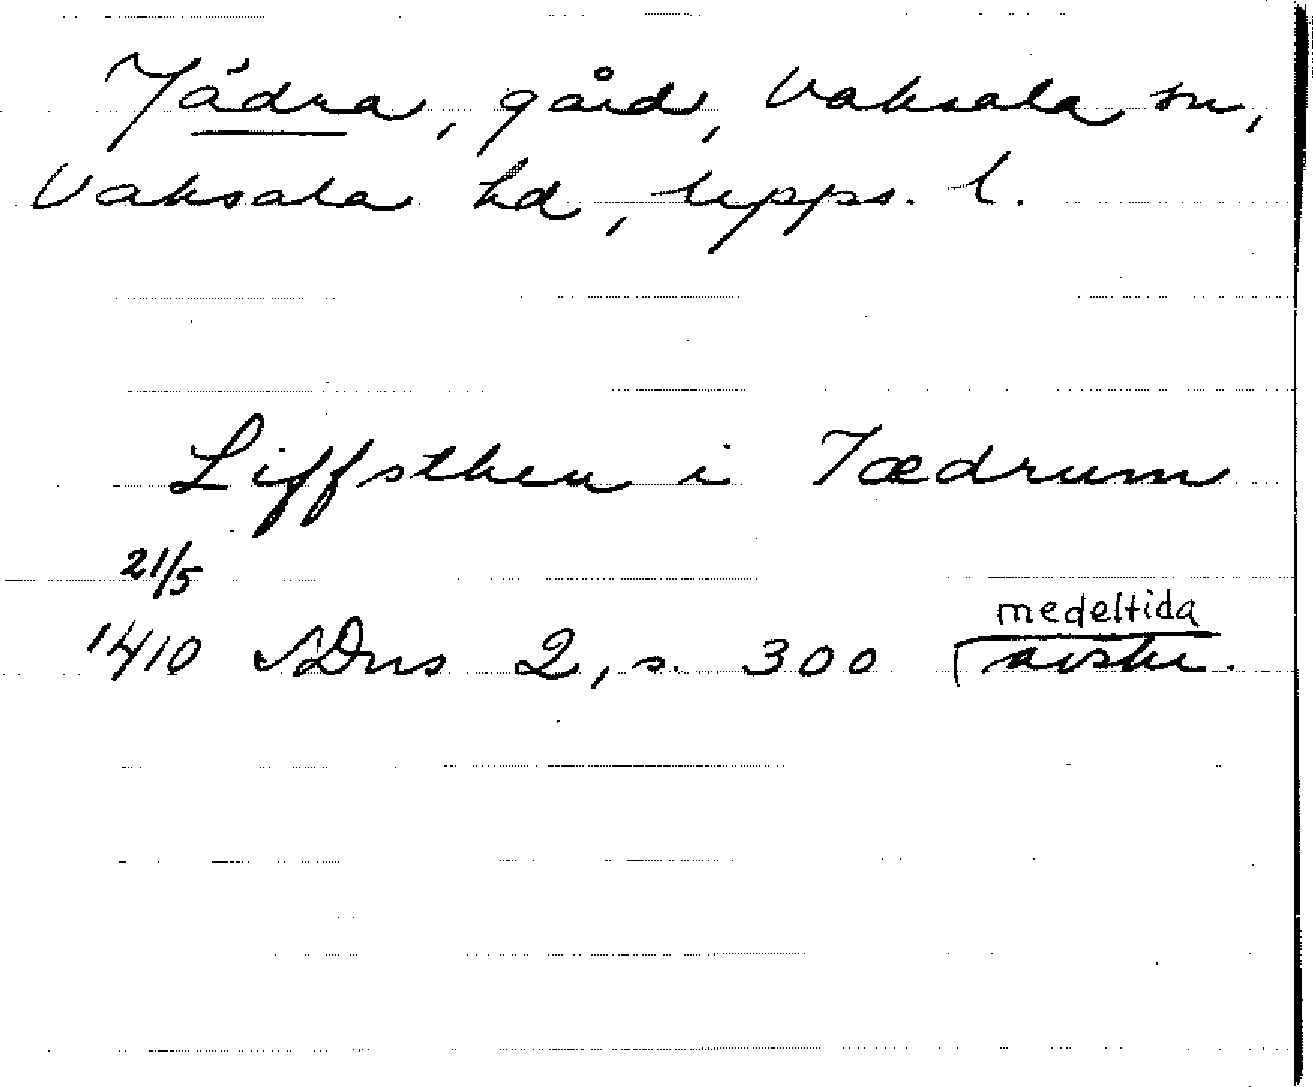 Jädra, gård, Vaksala sn,
Vaksala hd, Upps. l.
Liffsthen i Jædrum
21/5
1410 SDns 2, s. 300 (medeltida avskr.